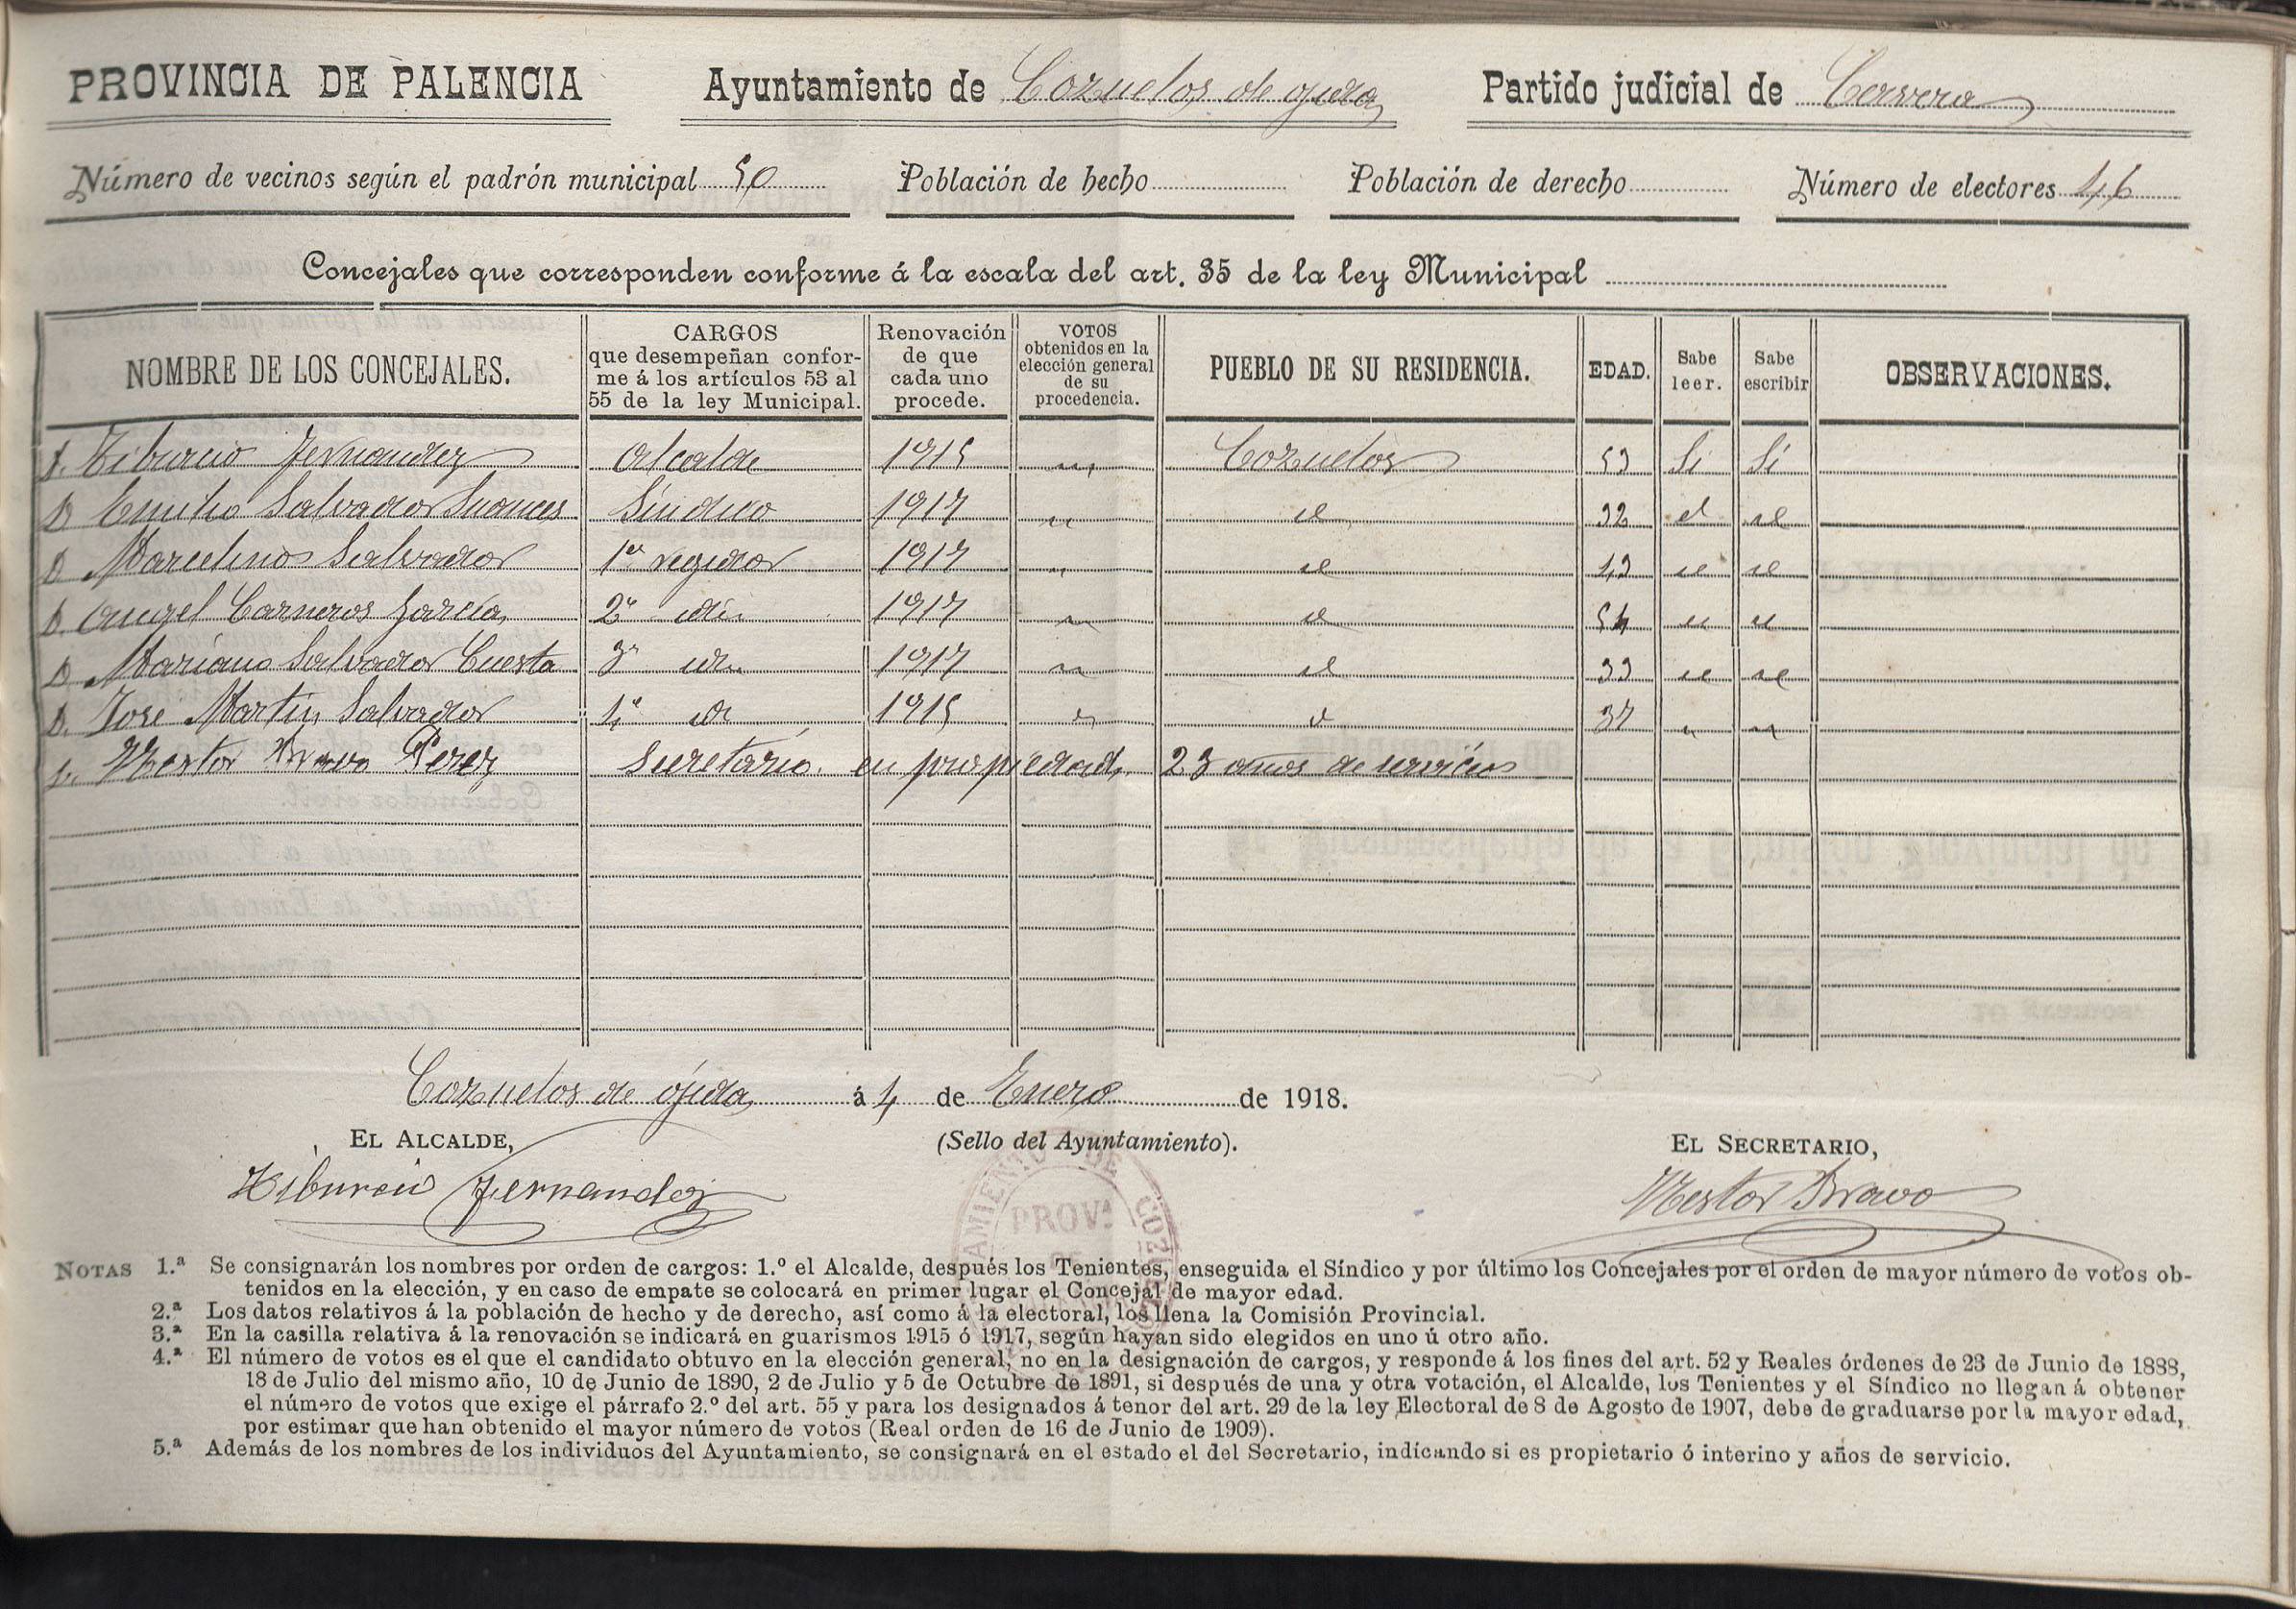 PROVINCIA DE PALENCIA Ayuntamiento de Cozuelos de ojeda Partido judicial de Cervera
Número de vecinos según el padrón municipal 50 Población de hecho Población de derecho Número de electores 46
Concejales que corresponden conforme á la escala del art. 35 de la ley Municipal
NOMBRE DE LOS CONCEJALES. CARGOS que desempeñan conforme á los artículos 53 al 55 de la ley Municipal. Renovación de que cada uno procede. VOTOS obtenidos en la elección general de su procedencia. PUEBLO DE SU RESIDENCIA. EDAD. Sabe leer. Sabe escribir OBSERVACIONES.
D. Tiburcio Fernandez Alcalde 1915 " Cozuelos 53 Si Si
D Emilio Salvador Suances Síndico 1917 " id 32 id id
D Marcelino Salvador 1er regidor 1917 " id 43 id id
D. Angel Carneros García 2º idin 1917 " id 54 id id
D Mariano Salvador Cuesta 3º idn 1917 " id 33 id id
D. José Martin Salvador 4º id 1915 " id 37 " "
D. Nestor Bravo Perez Secretario en propiedad, 23 años de servicios
Cozuelos de ójeda á 4 de Enero de 1918.
EL ALCALDE, (Sello del Ayuntamiento). EL SECRETARIO,
Tiburcio Fernandez Nestor Bravo
PROVª
NOTAS 1.ª Se consignarán los nombres por orden de cargos: 1.º el Alcalde, después los Tenientes, enseguida el Síndico y por último los Concejales por el orden de mayor número de votos ob-
tenidos en la elección, y en caso de empate se colocará en primer lugar el Concejal de mayor edad.
2.ª Los datos relativos á la población de hecho y de derecho, así como á la electoral, los llena la Comisión Provincial.
3.ª En la casilla relativa á la renovación se indicará en guarismos 1915 ó 1917, según hayan sido elegidos en uno ú otro año.
4.ª El número de votos es el que el candidato obtuvo en la elección general, no en la designación de cargos, y responde á los fines del art. 52 y Reales órdenes de 23 de Junio de 1888,
18 de Julio del mismo año, 10 de Junio de 1890, 2 de Julio y 5 de Octubre de 1891, si después de una y otra votación, el Alcalde, los Tenientes y el Síndico no llegan á obtener
el número de votos que exige el párrafo 2.º del art. 55 y para los designados á tenor del art. 29 de la ley Electoral de 8 de Agosto de 1907, debe de graduarse por la mayor edad,
por estimar que han obtenido el mayor número de votos (Real orden de 16 de Junio de 1909).
5.ª Además de los nombres de los individuos del Ayuntamiento, se consignará en el estado el del Secretario, indicando si es propietario ó interino y años de servicio.